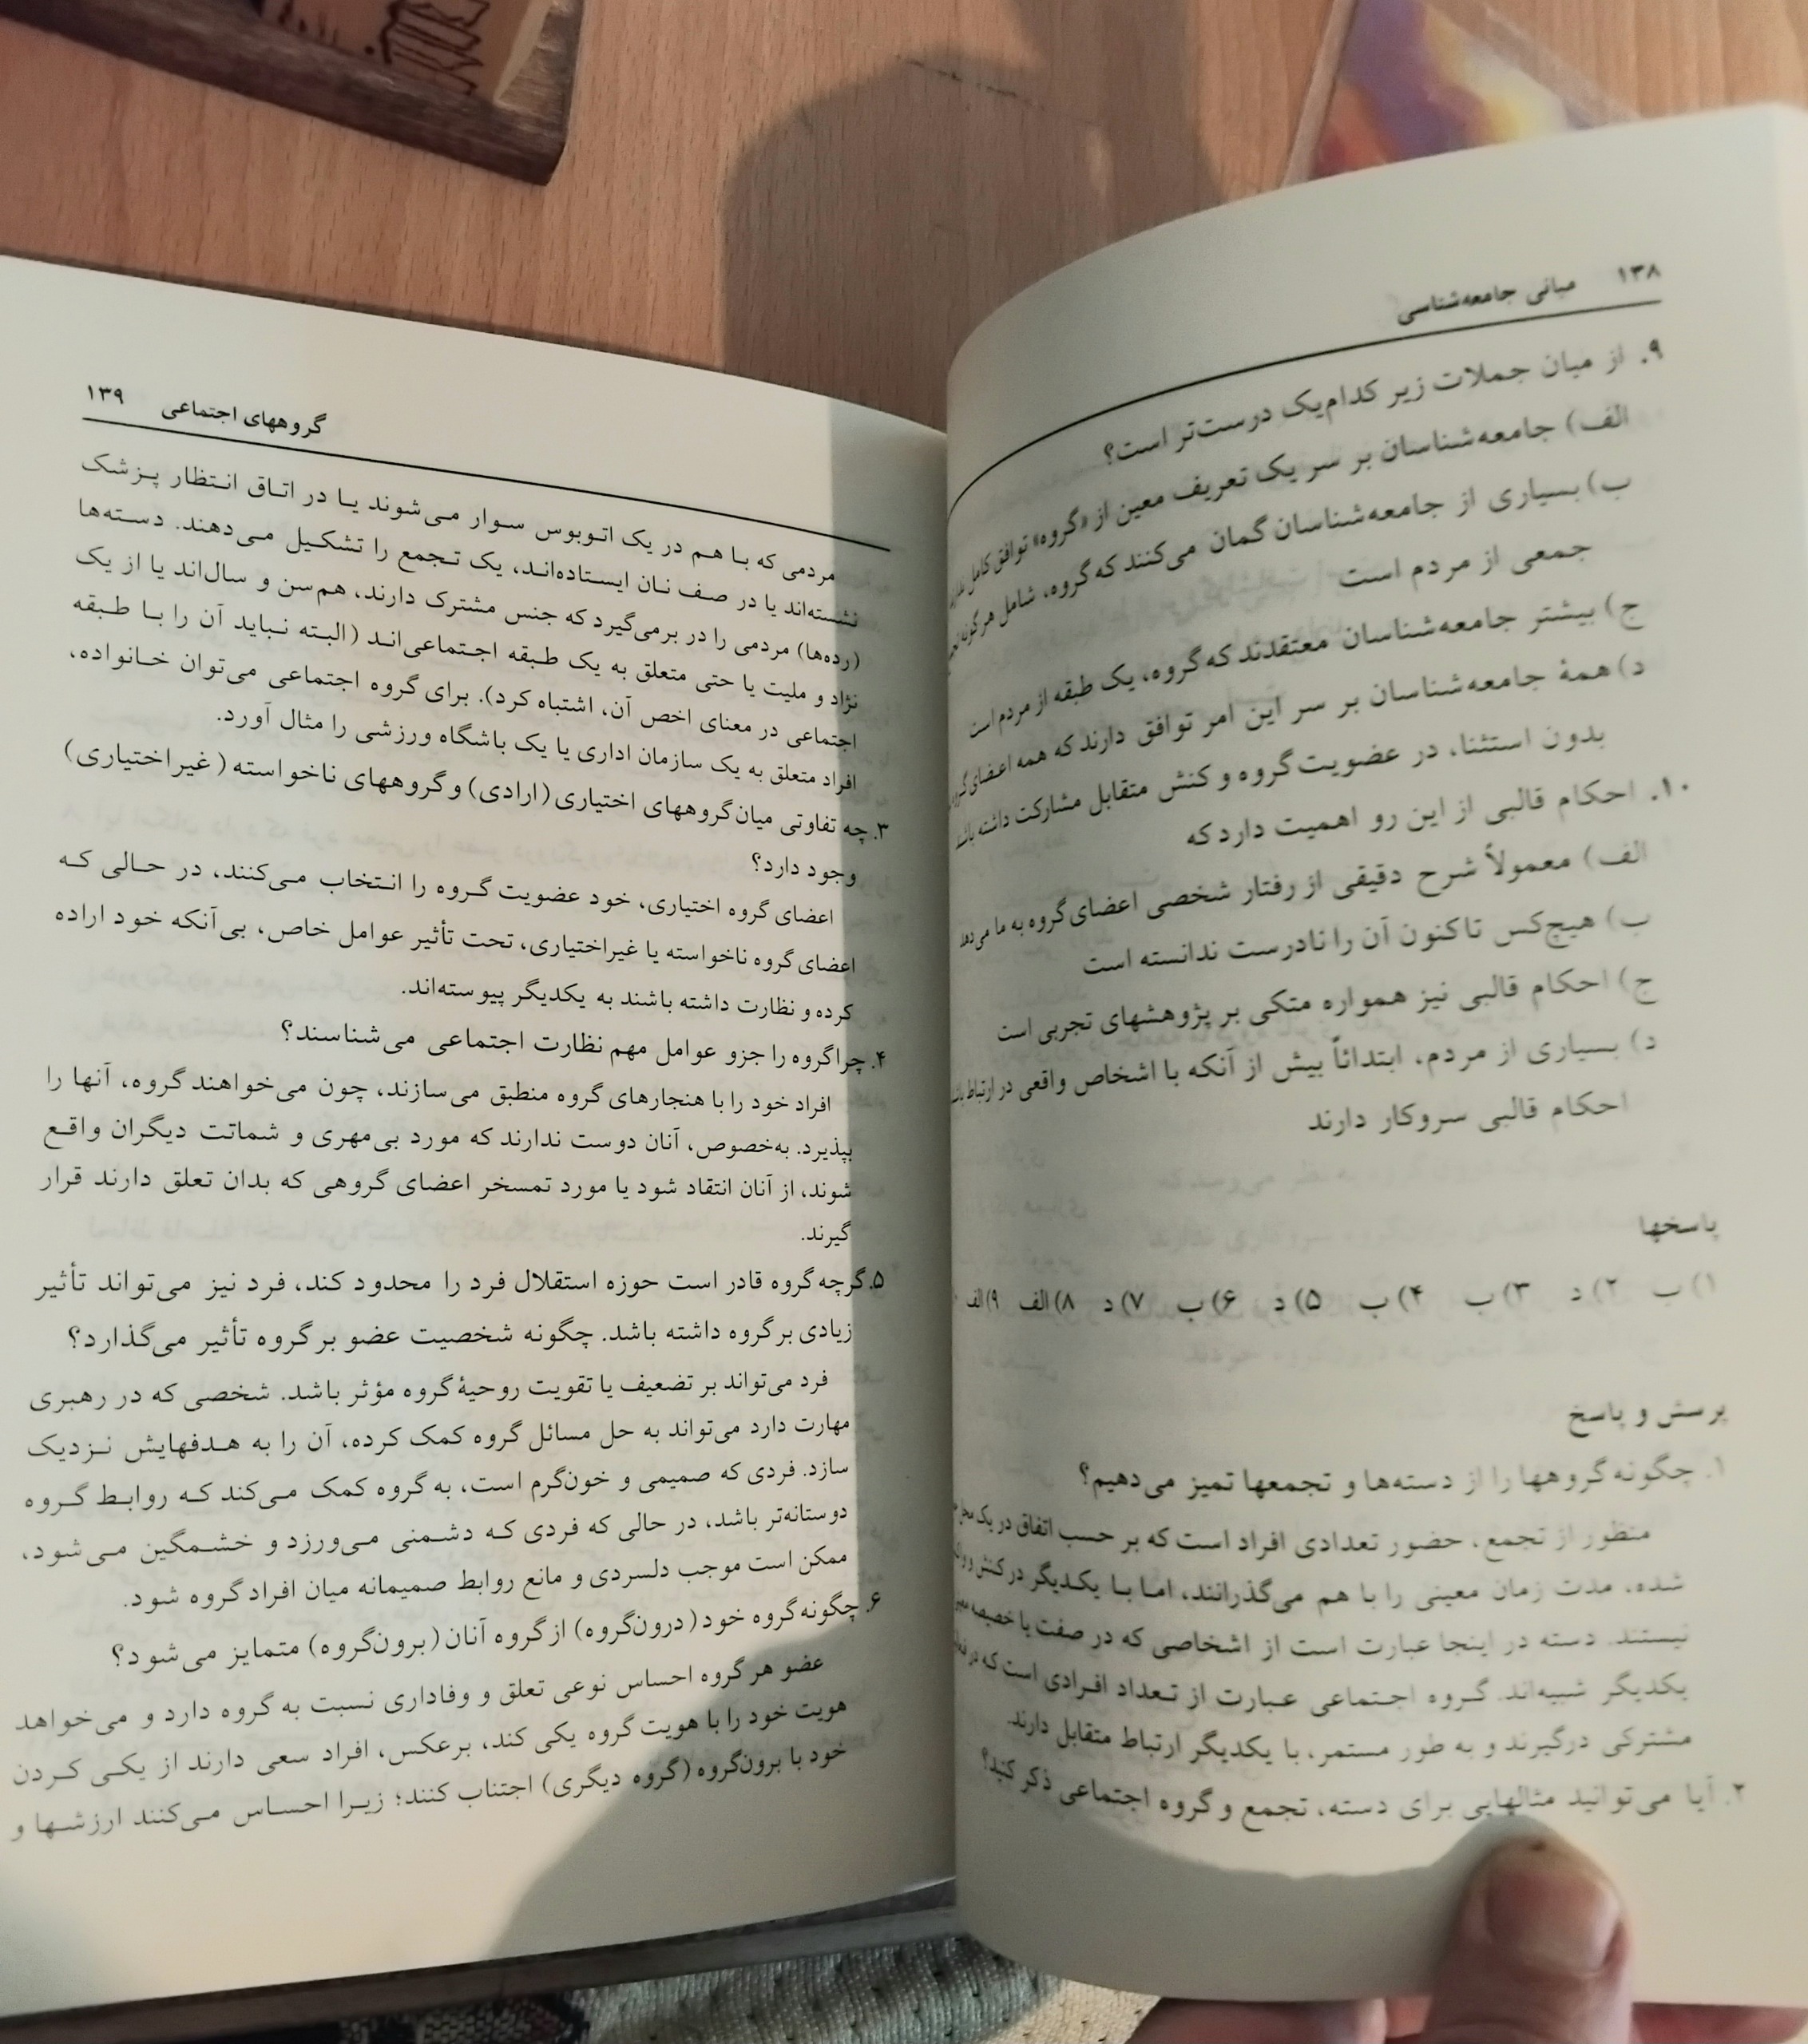 ۱۳۸ مبانی جامعه‌شناسی
۹. از میان جملات زیر کدام‌یک درست‌تر است؟
الف) جامعه‌شناسان بر سر یک تعریف معین از «گروه» توافق کامل
ب) بسیاری از جامعه‌شناسان گمان می‌کنند که گروه، شامل هرگونه
جمعی از مردم است
ج) بیشتر جامعه‌شناسان معتقدند که گروه، یک طبقه از مردم است
د) همهٔ جامعه‌شناسان بر سر این امر توافق دارند که همه اعضای
بدون استثنا، در عضویت گروه و کنش متقابل مشارکت داشته باشند
۱۰. احکام قالبی از این رو اهمیت دارد که
الف) معمولاً شرح دقیقی از رفتار شخصی اعضای گروه به ما می‌دهد
ب) هیچ‌کس تاکنون آن را نادرست ندانسته است
ج) احکام قالبی نیز همواره متکی بر پژوهشهای تجربی است
د) بسیاری از مردم، ابتدائاً بیش از آنکه با اشخاص واقعی در ارتباط
احکام قالبی سروکار دارند
پاسخها
۱) ب ۲) د ۳) ب ۴) ب ۵) د ۶) ب ۷) د ۸) الف ۹) الف
پرسش و پاسخ
۱. چگونه گروهها را از دسته‌ها و تجمعها تمیز می‌دهیم؟
منظور از تجمع، حضور تعدادی افراد است که بر حسب اتفاق در یک
شده، مدت زمان معینی را با هم می‌گذرانند، اما با یکدیگر در کنش و
نیستند. دسته در اینجا عبارت است از اشخاصی که در صفت یا خصیصه
یکدیگر شبیه‌اند. گروه اجتماعی عبارت از تعداد افرادی است که در
مشترکی درگیرند و به طور مستمر، با یکدیگر ارتباط متقابل دارند.
۲. آیا می‌توانید مثالهایی برای دسته، تجمع و گروه اجتماعی ذکر کنید؟
گروههای اجتماعی ۱۳۹
مردمی که با هم در یک اتوبوس سوار می‌شوند یا در اتاق انتظار پزشک
نشسته‌اند یا در صف نان ایستاده‌اند، یک تجمع را تشکیل می‌دهند. دسته‌ها
(رده‌ها) مردمی را در برمی‌گیرد که جنس مشترک دارند، هم‌سن و سال‌اند یا از یک
نژاد و ملیت یا حتی متعلق به یک طبقه اجتماعی‌اند (البته نباید آن را با طبقه
اجتماعی در معنای اخص آن، اشتباه کرد). برای گروه اجتماعی می‌توان خانواده،
افراد متعلق به یک سازمان اداری یا یک باشگاه ورزشی را مثال آورد.
۳. چه تفاوتی میان گروههای اختیاری (ارادی) و گروههای ناخواسته (غیراختیاری)
وجود دارد؟
اعضای گروه اختیاری، خود عضویت گروه را انتخاب می‌کنند، در حالی که
اعضای گروه ناخواسته یا غیراختیاری، تحت تأثیر عوامل خاص، بی‌آنکه خود اراده
کرده و نظارت داشته باشند به یکدیگر پیوسته‌اند.
۴. چرا گروه را جزو عوامل مهم نظارت اجتماعی می‌شناسند؟
افراد خود را با هنجارهای گروه منطبق می‌سازند، چون می‌خواهند گروه، آنها را
بپذیرد. به‌خصوص، آنان دوست ندارند که مورد بی‌مهری و شماتت دیگران واقع
شوند، از آنان انتقاد شود یا مورد تمسخر اعضای گروهی که بدان تعلق دارند قرار
گیرند.
۵. گرچه گروه قادر است حوزه استقلال فرد را محدود کند، فرد نیز می‌تواند تأثیر
زیادی بر گروه داشته باشد. چگونه شخصیت عضو بر گروه تأثیر می‌گذارد؟
فرد می‌تواند بر تضعیف یا تقویت روحیهٔ گروه مؤثر باشد. شخصی که در رهبری
مهارت دارد می‌تواند به حل مسائل گروه کمک کرده، آن را به هدفهایش نزدیک
سازد. فردی که صمیمی و خون‌گرم است، به گروه کمک می‌کند که روابط گروه
دوستانه‌تر باشد، در حالی که فردی که دشمنی می‌ورزد و خشمگین می‌شود،
ممکن است موجب دلسردی و مانع روابط صمیمانه میان افراد گروه شود.
۶. چگونه گروه خود (درون‌گروه) از گروه آنان (برون‌گروه) متمایز می‌شود؟
عضو هر گروه احساس نوعی تعلق و وفاداری نسبت به گروه دارد و می‌خواهد
هویت خود را با هویت گروه یکی کند، برعکس، افراد سعی دارند از یکی کردن
خود با برون‌گروه (گروه دیگری) اجتناب کنند؛ زیرا احساس می‌کنند ارزشها و